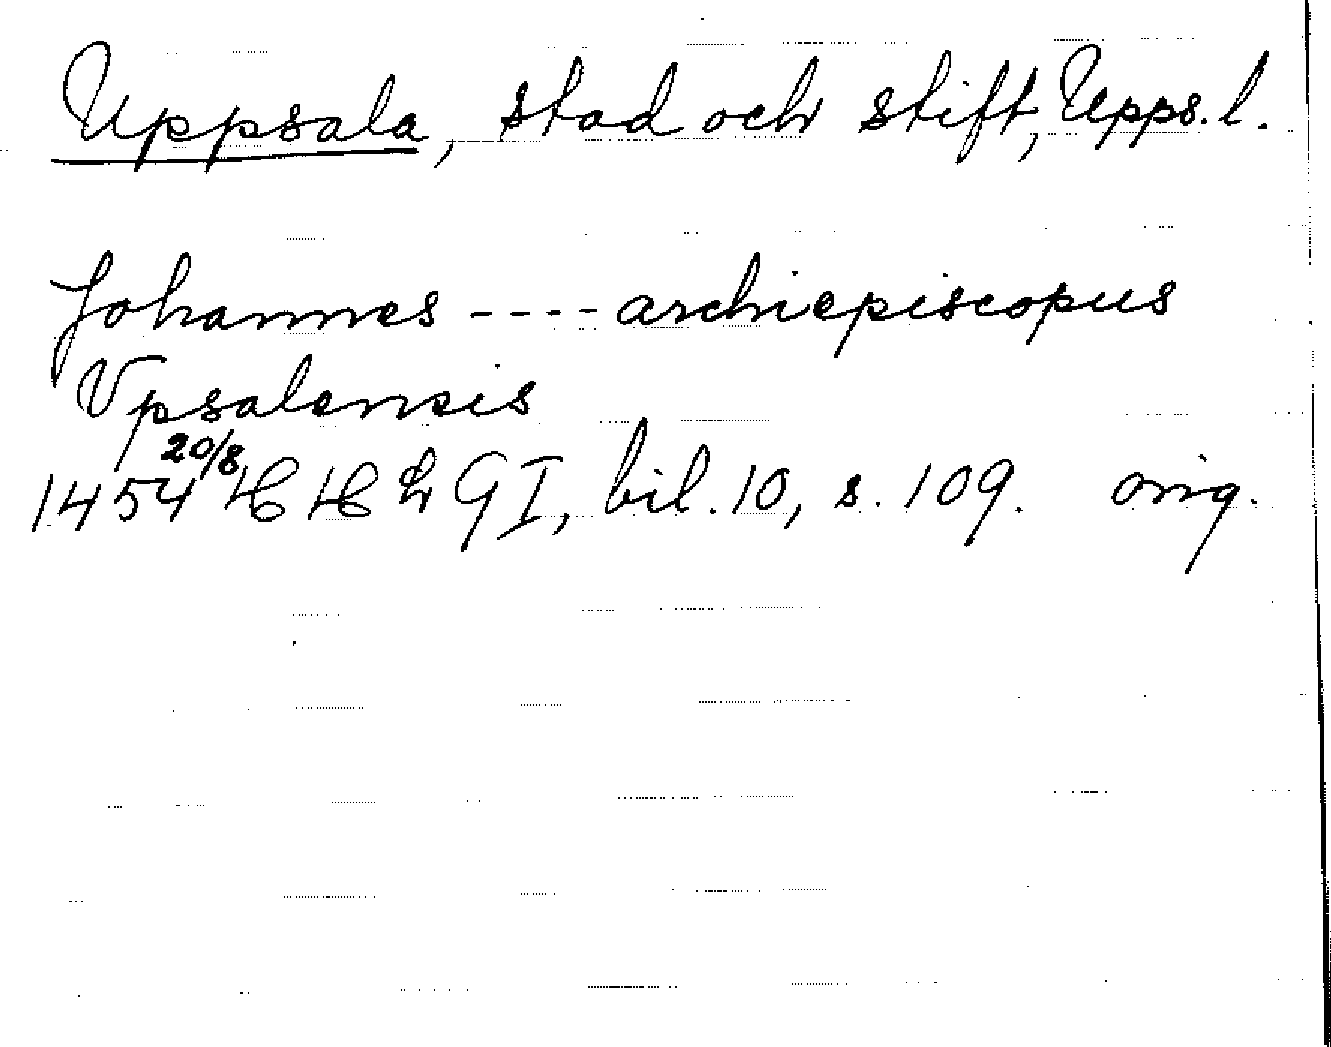 Uppsala, stad och stift, Upps. l.
Johannes ---- archiepiscopus
Vpsalensis
1454 20/8 HHLGI, bil. 10, s. 109. orig.